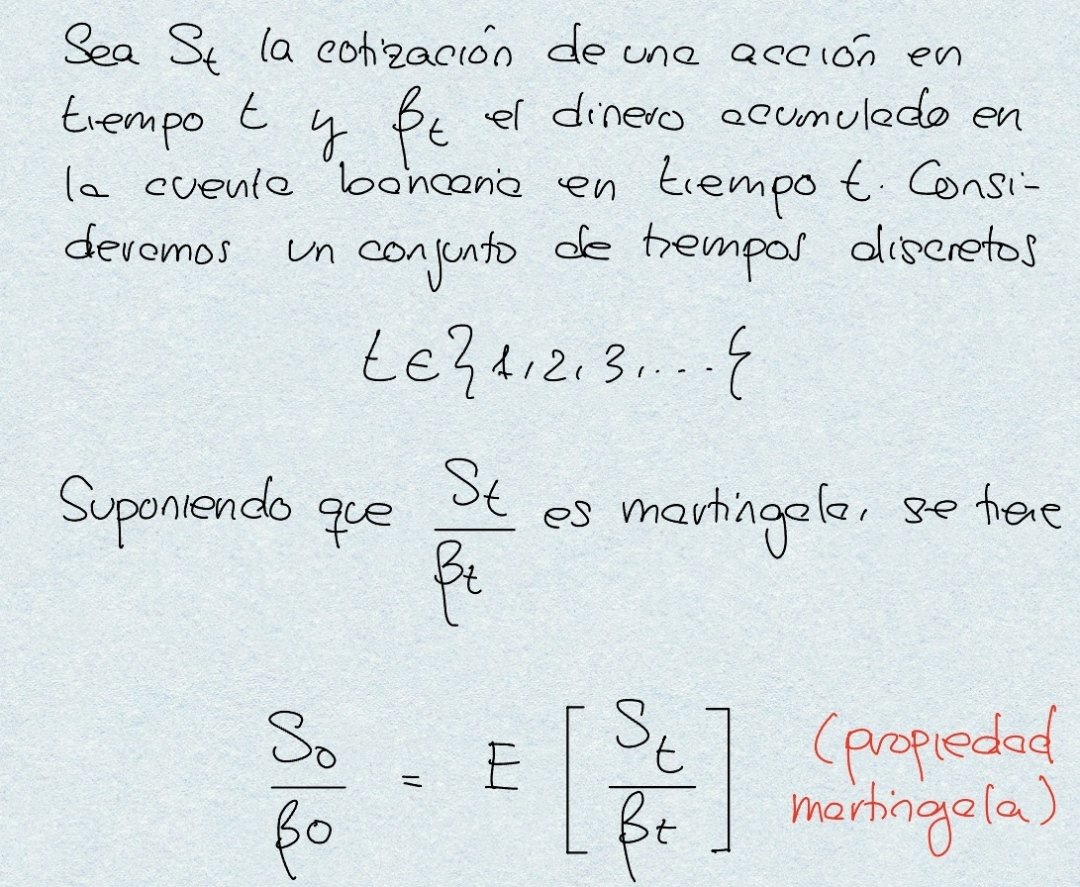 Sea Sₜ la cotización de una acción en
tiempo t y βₜ el dinero acumulado en
la cuenta bancaria en tiempo t. Consi-
deramos un conjunto de tiempos discretos
t ∈ } 1, 2, 3, ... {
Suponiendo que Sₜ/βₜ es martingala, se tiene
S₀/β₀ = E [Sₜ/βₜ] (propiedad
martingala)